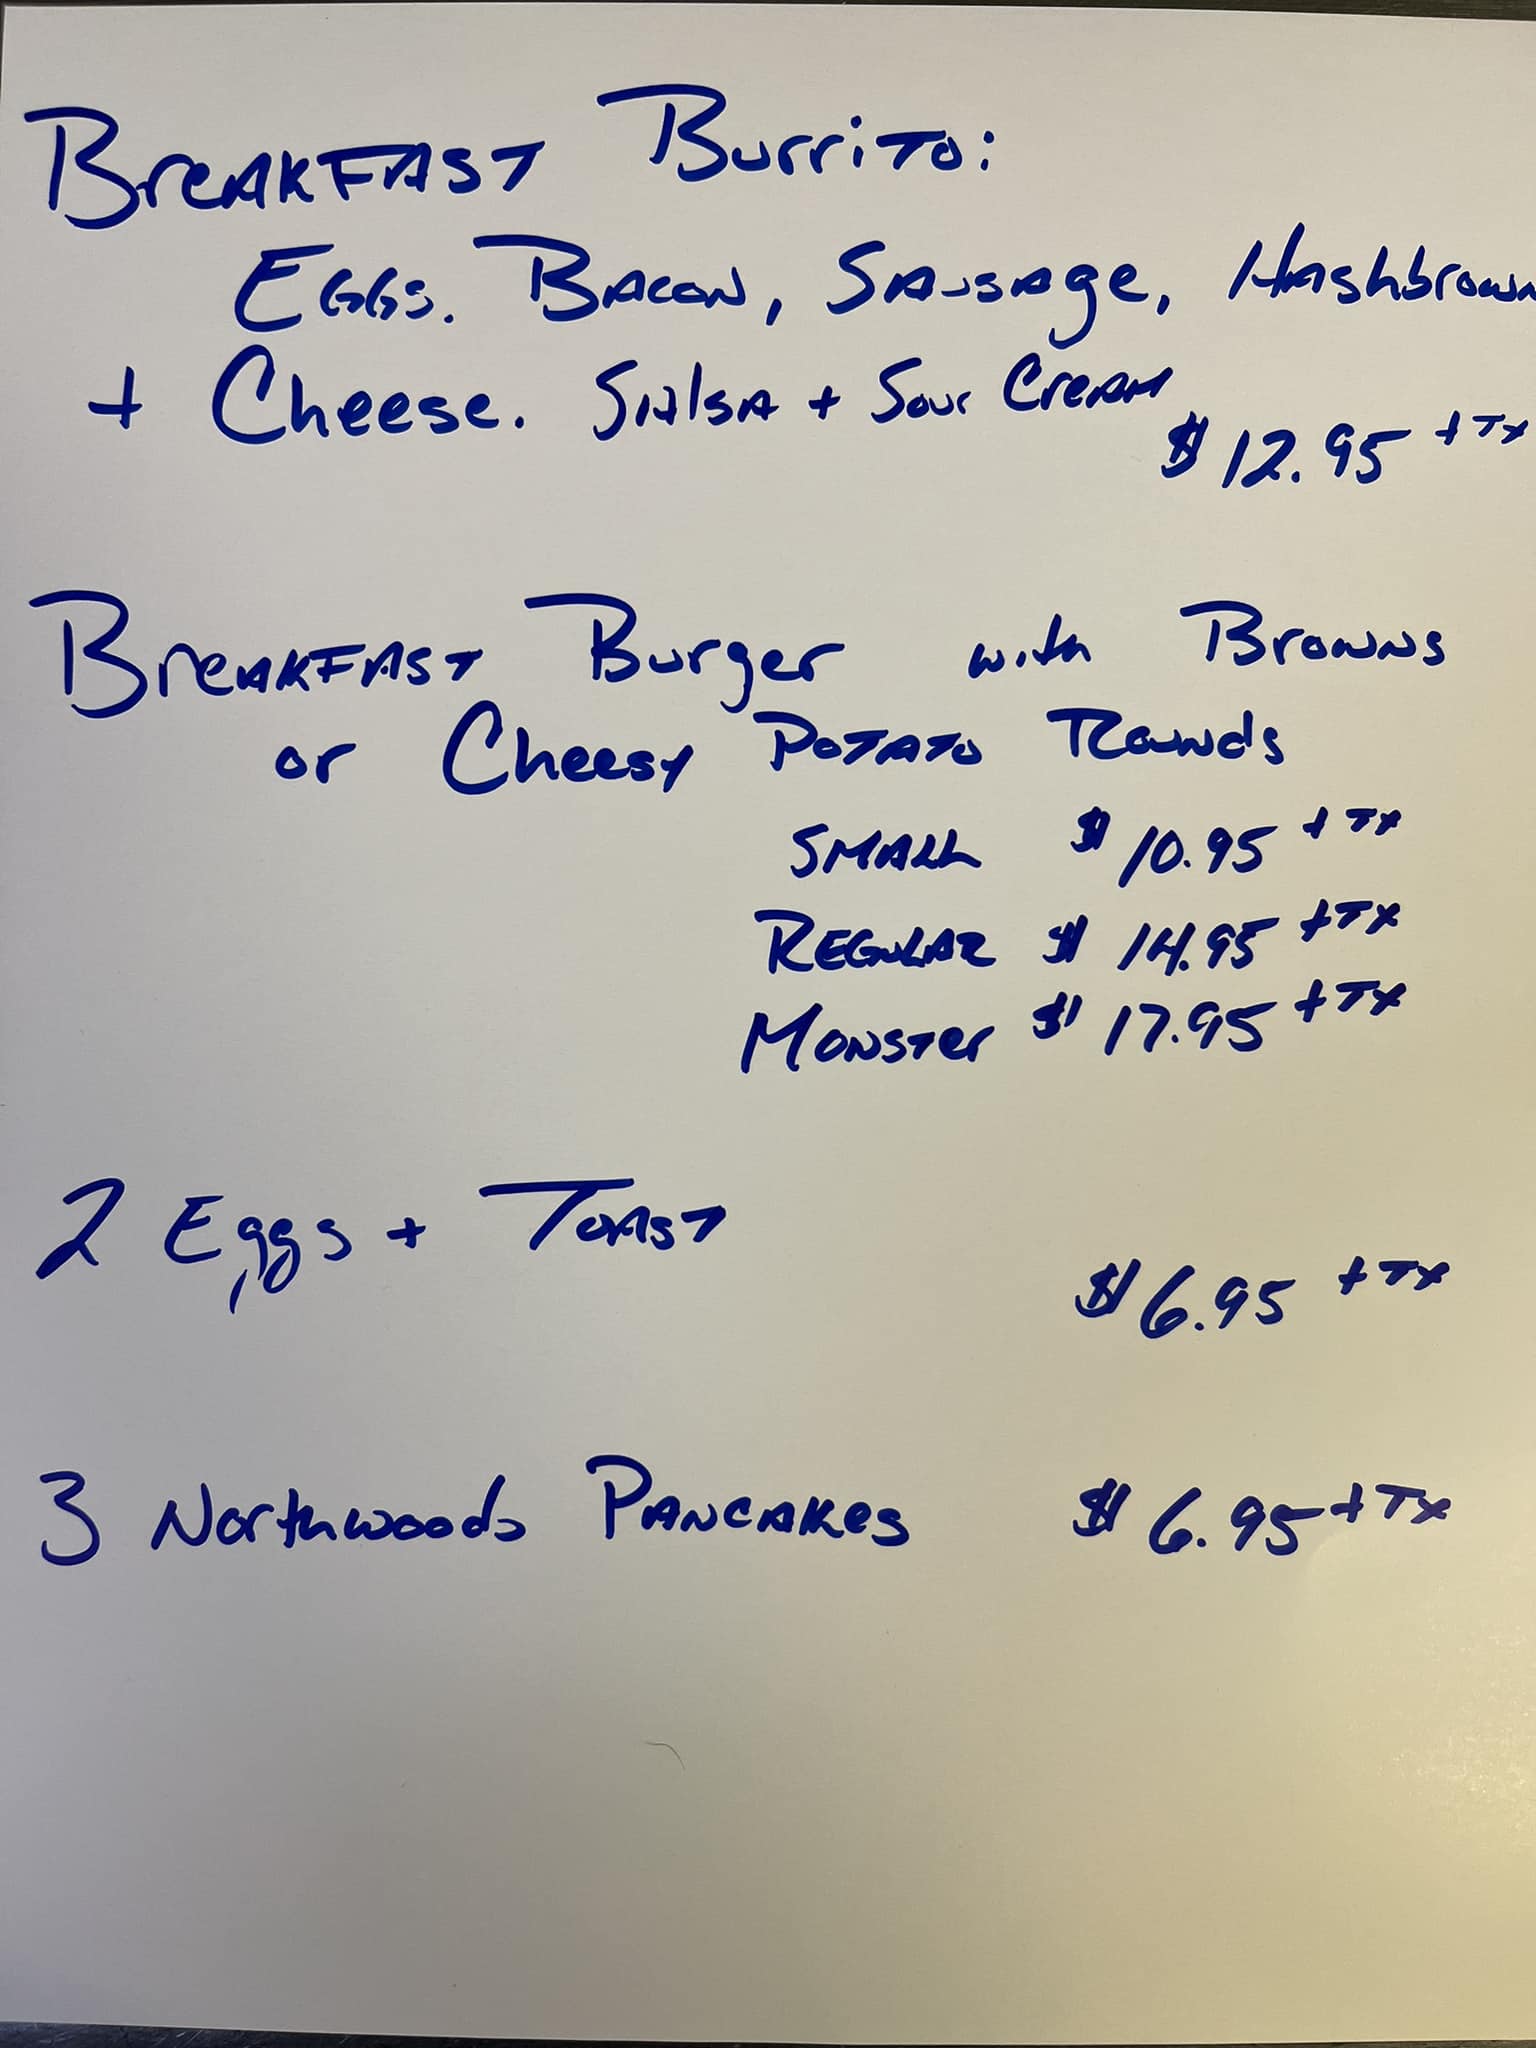 Breakfast Burrito:
Eggs. Bacon, Sausage, Hashbrown
+ Cheese. Salsa + Sour Cream
$12.95 + Tx
Breakfast Burger with Browns
or Cheesy Potato Rounds
Small $10.95 + Tx
Regular $14.95 + Tx
Monster $17.95 + Tx
2 Eggs + Toast
$6.95 + Tx
3 Northwoods Pancakes $6.95 + Tx